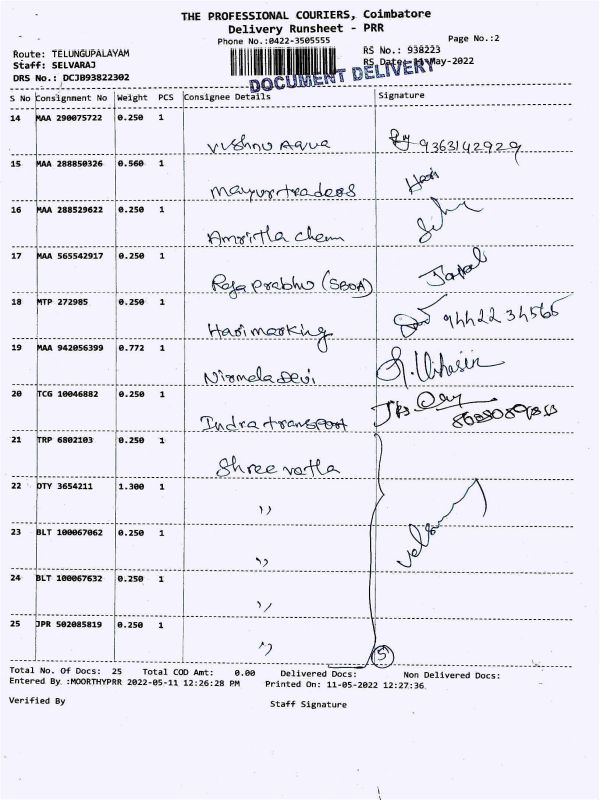 THE PROFESSIONAL COURIERS, Coimbatore
Delivery Runsheet - PRR
Phone No.:0422-3505555 Page No.:2
Route: TELUNGUPALAYAM RS No.: 938223
Staff: SELVARAJ RS Date: 11-May-2022
DRS No.: DCJB93822302
DOCUMENT DELIVERY
S No Consignment No Weight PCS Consignee Details Signature
14 MAA 290075722 0.250 1
Vishnu Aqua 9363142929
15 MAA 288850326 0.560 1
Mayurtraders Hari
16 MAA 288529622 0.250 1
Amritla chem
17 MAA 565542917 0.250 1
Raja Prabhu (SBOA)
18 MTP 272985 0.250 1
Harimarking 94422 34565
19 MAA 942056399 0.772 1
Nirmela Devi
20 TCG 10046882 0.250 1
Indra transport
21 TRP 6802103 0.250 1
Shree vatla
22 DTY 3654211 1.300 1
"
23 BLT 100067062 0.250 1
"
24 BLT 100067632 0.250 1
"
25 JPR 502085819 0.250 1
" 5
Total No. Of Docs: 25 Total COD Amt: 0.00 Delivered Docs: Non Delivered Docs:
Entered By :MOORTHYPRR 2022-05-11 12:26:28 PM Printed On: 11-05-2022 12:27:36
Verified By Staff Signature